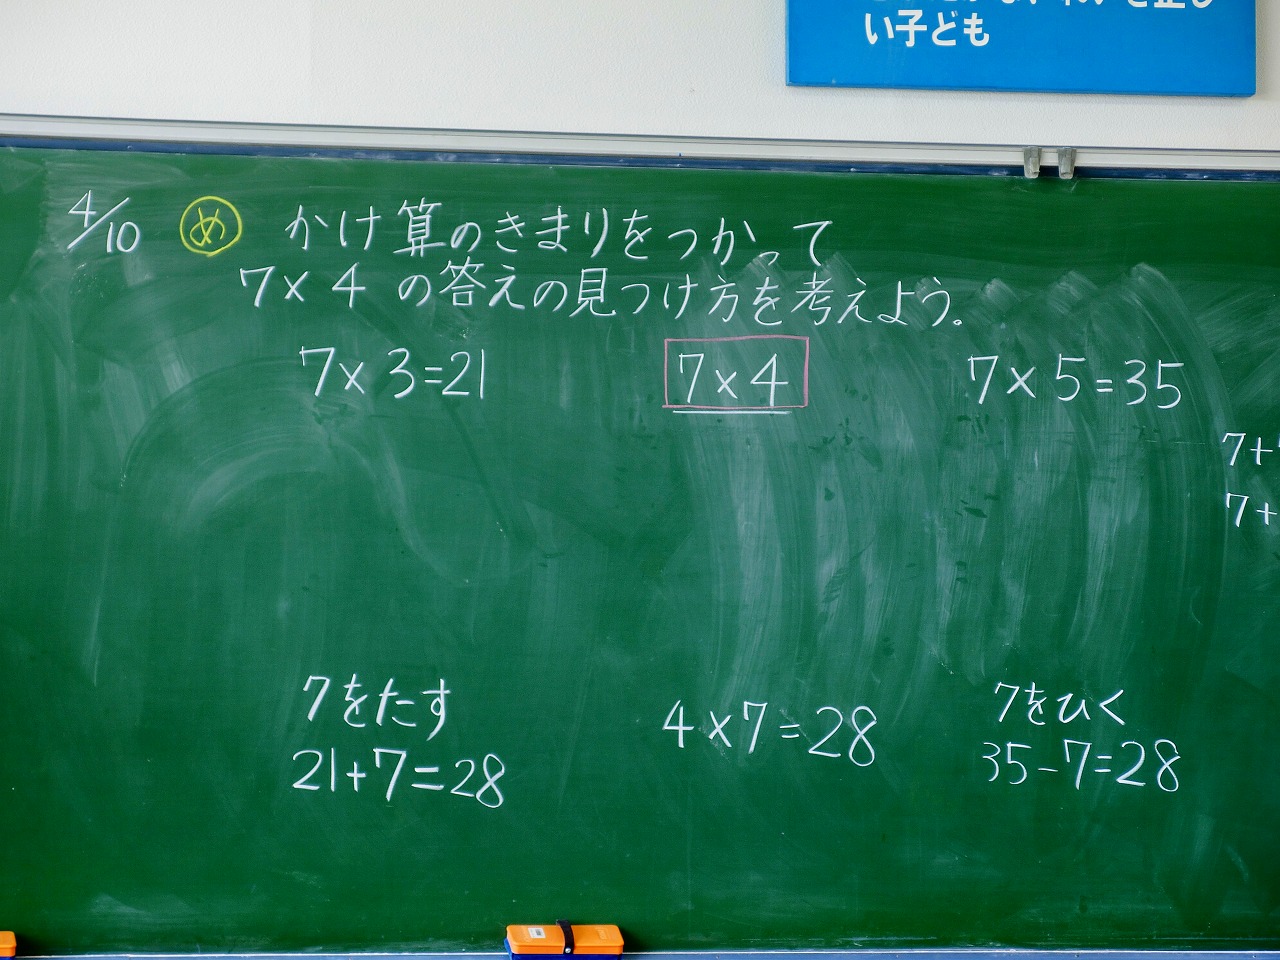 い子ども
4/10 め かけ算のきまりをつかって
7×4の答えの見つけ方を考えよう。
7×3=21
7×4
7×5=35
7+
7+
7をたす
21+7=28
4×7=28
7をひく
35-7=28